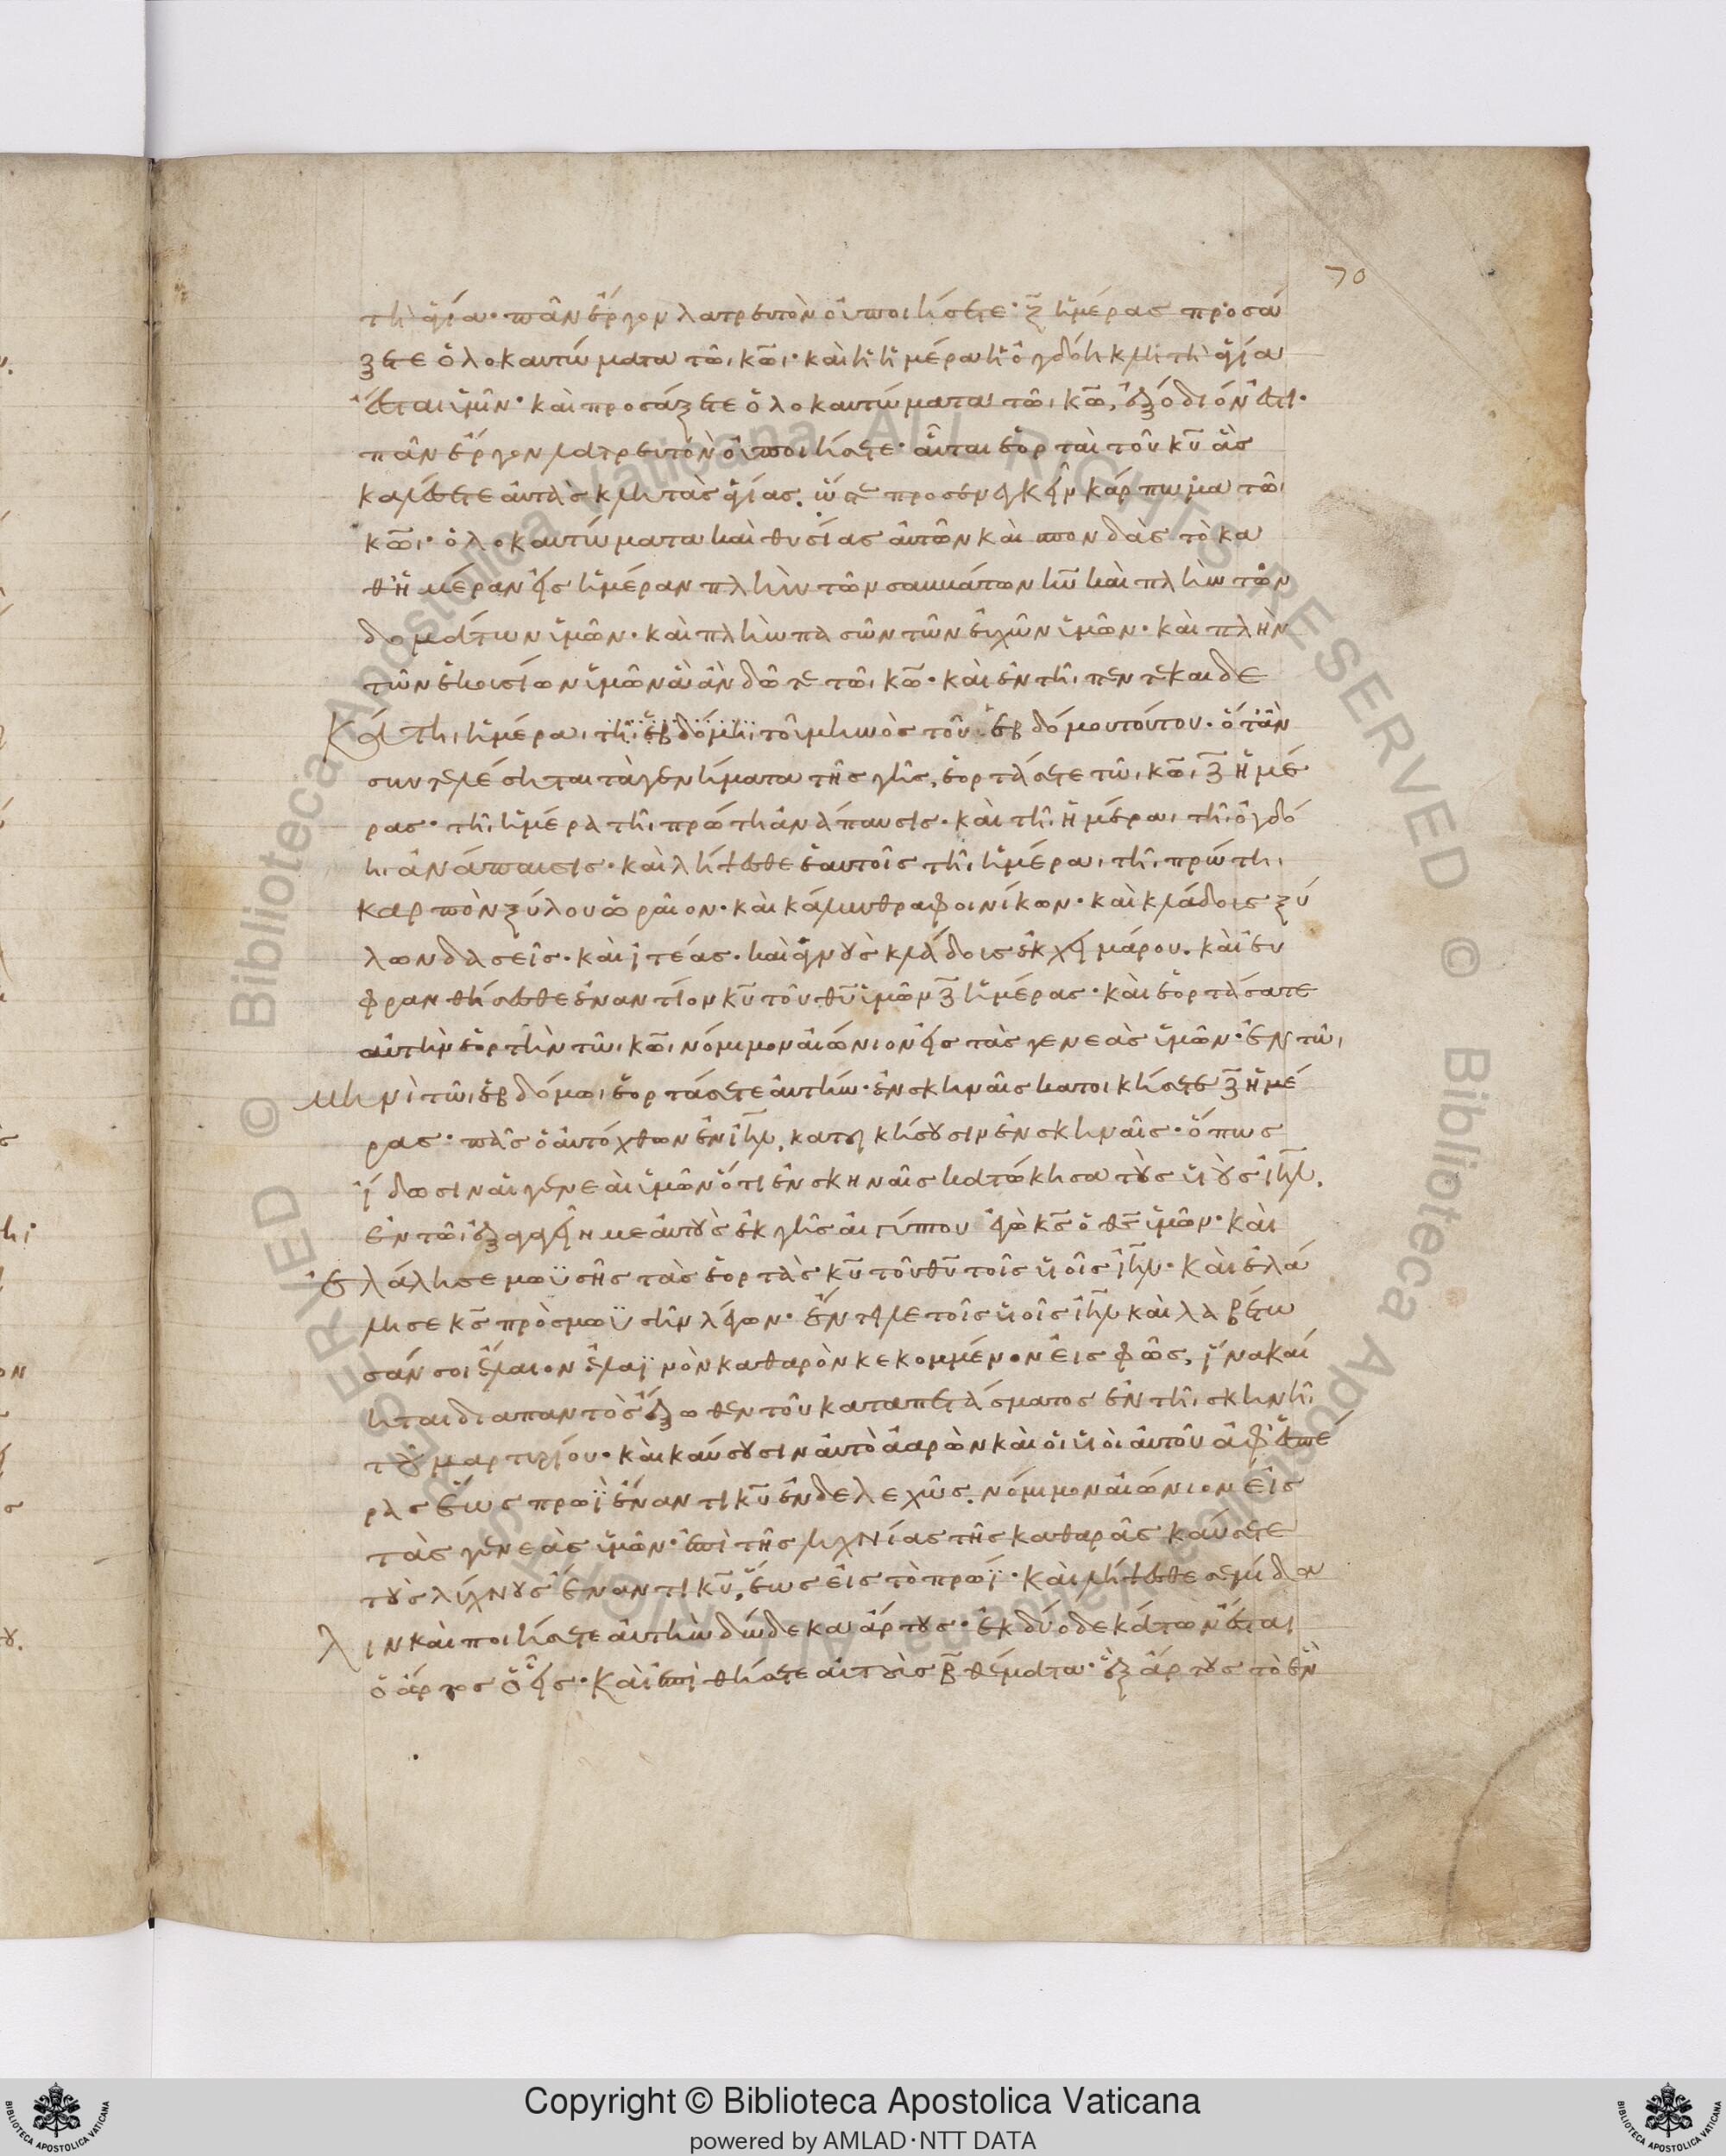 70
τὴ ἁγία· πᾶν ἔργον λατρευτὸν οὐ ποιήσετε· ζ̄ ἡμέρας προσά
ξετε ὁλοκαυτώματα τῶι κ̅ω̅ι· καὶ ἡ ἡμέρα ἡ ὀγδόη κλητὴ ἁγία
ἔσται ὑμῖν· καὶ προσάξετε ὁλοκαυτώματα τῶι κ̅ω̅, ἐξόδιόν ἐστι·
πᾶν ἔργον λατρευτὸν οὐ ποιήσετε· αὗται ἑορταὶ τοῦ κ̅υ̅ ἃς
καλέσετε αὐτὰς κλητὰς ἁγίας. ὥστε προσενεγκεῖν κάρπωμα τῶι
κ̅ω̅ι· ὁλοκαυτώματα καὶ θυσίας αὐτῶν καὶ σπονδὰς τὸ κα
θ' ἡμέραν εἰς ἡμέραν πλὴν τῶν σαββάτων κ̅υ̅ καὶ πλὴν τῶν
δομάτων ὑμῶν· καὶ πλὴν πασῶν τῶν εὐχῶν ὑμῶν· καὶ πλὴν
τῶν ἑκουσίων ὑμῶν ἃ ἂν δῶτε τῶι κ̅ω̅· καὶ ἐν τῆι πεντεκαιδε
κάτηι ἡμέραι τῆι ἑβδόμηι τοῦ μηνὸς τοῦ ἑβδόμου τούτου· ὅταν
συντελέσηται τὰ γενήματα τῆς γῆς, ἑορτάσετε τῶι κ̅ω̅ι ζ̄ ἡμέ
ρας· τῆι ἡμέρα τῆι πρώτη ἀνάπαυσις· καὶ τῆι ἡμέραι τῆι ὀγδό
ηι ἀνάπαυσις· καὶ λήψεσθε ἑαυτοῖς τῆι ἡμέραι τῆι πρώτηι
καρπὸν ξύλου ὡραῖον· καὶ κάλυνθρα φοινίκων· καὶ κλάδους ξύ
λων δασεῖς· καὶ ἰτέας· καὶ ἁγνοὺς κλάδους ἐκ χειμάρου. καὶ εὐ
φρανθήσεσθε ἐναντίον κ̅υ̅ τοῦ θ̅υ̅ ὑμῶν ζ̄ ἡμέρας· καὶ ἑορτάσατε
αὐτὴν ἑορτὴν τῶι κ̅ω̅ι νόμιμον αἰώνιον εἰς τὰς γενεὰς ὑμῶν· ἐν τῶι
μηνὶ τῶι ἑβδόμωι ἑορτάσετε αὐτήν· ἐν σκηναῖς κατοικήσετε ζ̄ ἡμέ
ρας· πᾶς ὁ αὐτόχθων ἐν ι̅η̅λ̅, κατοικήσουσιν ἐν σκηναῖς· ὅπως
ἴδωσιν αἱ γενεαὶ ὑμῶν ὅτι ἐν σκηναῖς κατώκησα τοὺς υἱοὺς ι̅η̅λ̅.
ἐν τῶι ἐξαγαγεῖν με αὐτοὺς ἐκ γῆς αἰγύπτου ἐγὼ κ̅ς̅ ὁ θ̅ς̅ ὑμῶν· καὶ
ἐλάλησε μωϋσῆς τὰς ἑορτὰς κ̅υ̅ τοῦ θ̅υ̅ τοῖς υἱοῖς ι̅η̅λ̅· καὶ ἐλά
λησε κ̅ς̅ πρὸς μωϋσῆν λέγων· ἔντειλε τοῖς υἱοῖς ι̅η̅λ̅ καὶ λαβέτω
σάν σοι ἔλαιον ἐλάϊνον καθαρὸν κεκομμένον εἰς φῶς, ἵνα καί
ηται διαπαντὸς ἔξωθεν τοῦ καταπετάσματος ἐν τῆι σκηνῆι
τοῦ μαρτυρίου· καὶ καύσουσιν αὐτὸ ἀαρὼν καὶ οἱ υἱοὶ αὐτοῦ ἀφ' ἑσπέ
ρας ἕως πρωῒ ἔναντι κ̅υ̅ ἐνδελεχῶς. νόμιμον αἰώνιον εἰς
τὰς γενεὰς ὑμῶν· ἐπὶ τῆς λυχνίας τῆς καθαρᾶς καύσετε
τοὺς λύχνους ἔναντι κ̅υ̅, ἕως εἰς τὸ πρωΐ· καὶ λήψεσθε σεμίδα
λιν καὶ ποιήσετε αὐτὴν δώδεκα ἄρτους· ἐκ δύο δεκάτων ἔσται
ὁ ἄρτος ὁ εἷς· καὶ ἐπιθήσετε αὐτοὺς β̄ θέματα· ἓξ ἄρτους τὸ ἓν
Copyright © Biblioteca Apostolica Vaticana
powered by AMLAD·NTT DATA